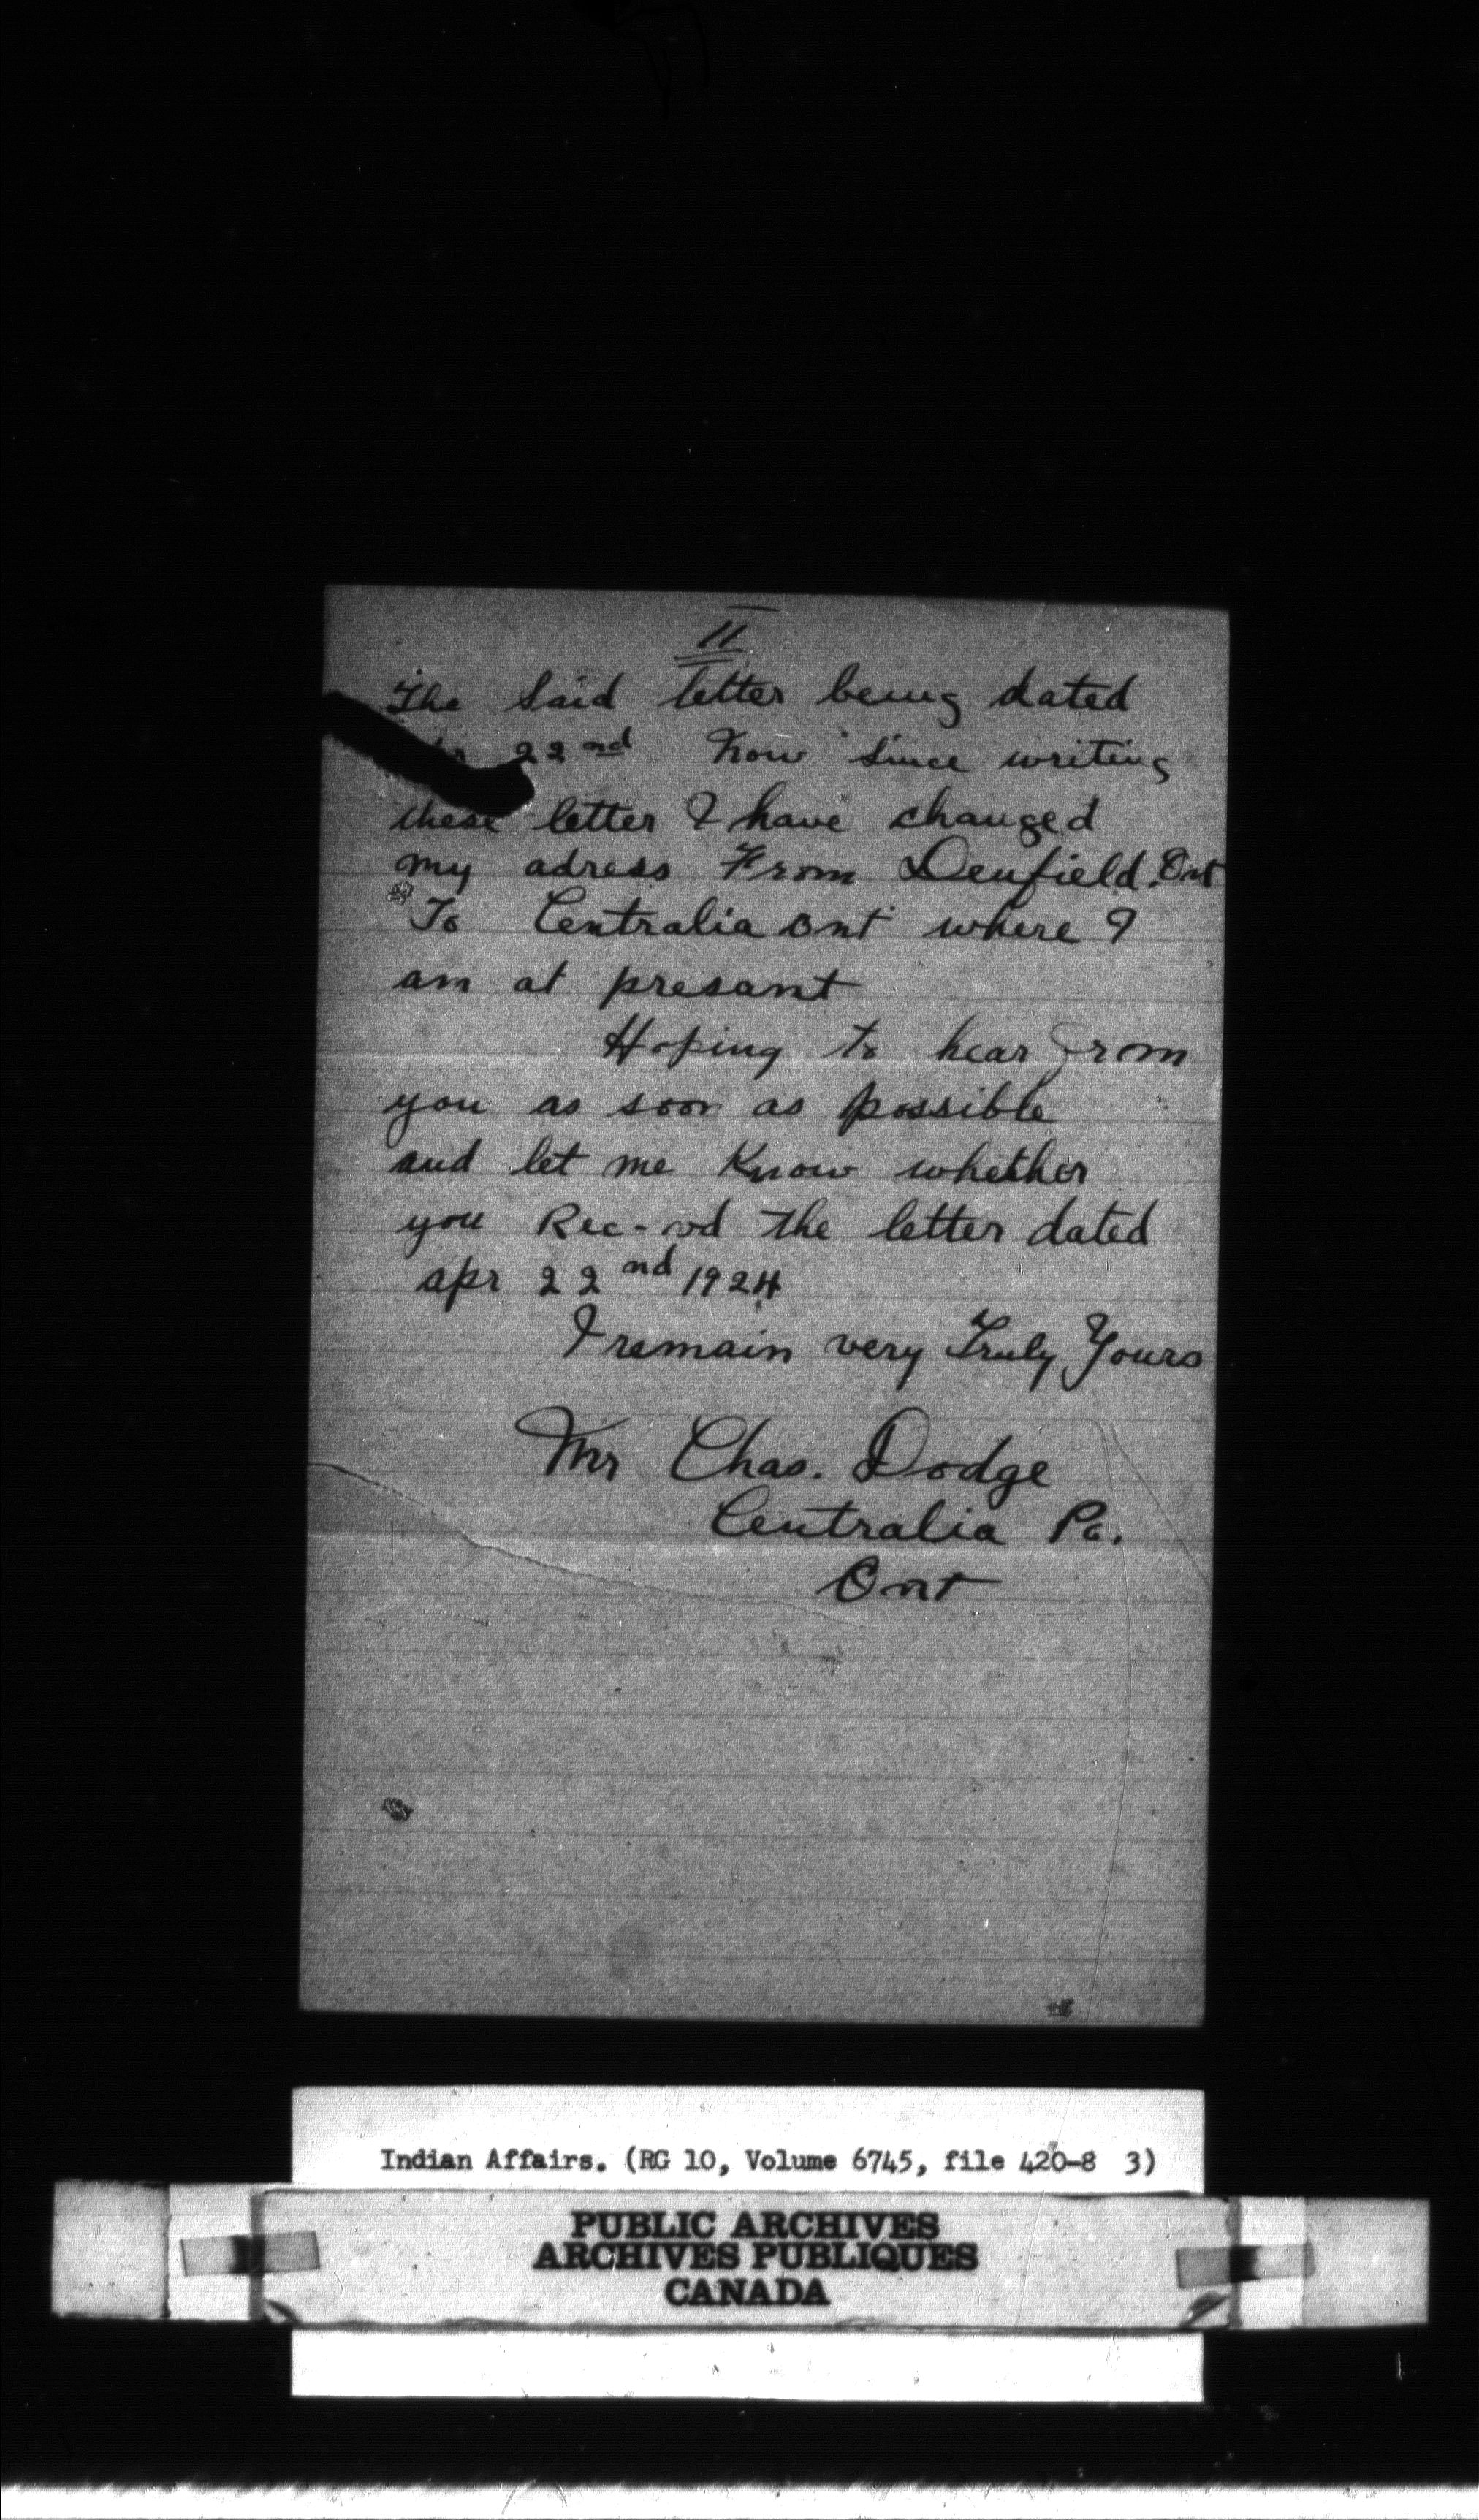 II
The Said letter being dated
22nd Now Since writing
these letter I have changed
my adress From Denfield. Ont
To Centralia Ont where I
am at presant
Hoping to hear From
you as soon as possible
and let me Know whether
you Rec-vd the letter dated
apr 22nd 1924
I remain very Truly Yours
Mr Chas. Dodge
Centralia Po.
Ont
Indian Affairs. (RG 10, Volume 6745, file 420-8 3)
PUBLIC ARCHIVES
ARCHIVES PUBLIQUES
CANADA